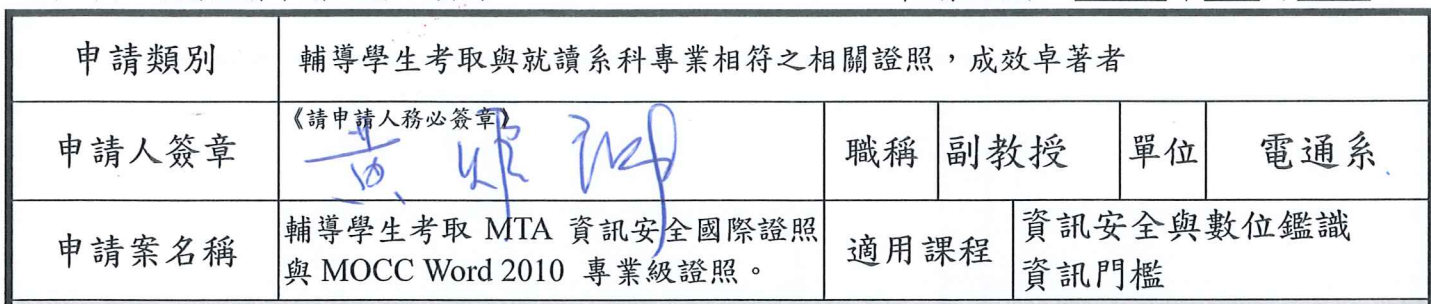 申請類別 輔導學生考取與就讀系科專業相符之相關證照，成效卓著者
《請申請人務必簽章》
申請人簽章 黃 職稱 副教授 單位 電通系
申請案名稱 輔導學生考取 MTA 資訊安全國際證照
與 MOCC Word 2010 專業級證照。
適用課程 資訊安全與數位鑑識
資訊門檻